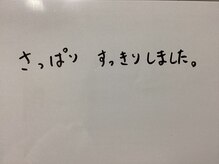 さっぱり　すっきりしました。